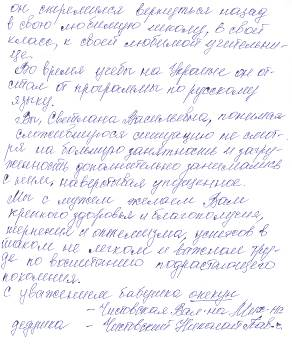 он стремился вернуться назад
в свою любимую школу, в свой
класс, к своей любимой учительни-
це.
Во время учебы на Украине он от-
стал от программы по русскому
языку.
Вы, Светлана Васильевна, понимая
сложившуюся ситуацию не смот-
ря на большую занятность и загру-
женность дополнительно занимались
с ним, наверстывая упущенное.
Мы с мужем желаем Вам
крепкого здоровья и благополучия,
терпения и оптимизма, успехов в
таком не легком и важном тру-
де по воспитанию подрастающего
поколения.
С уважением бабушка опекун
- Чистовская Вал-на
дедушка - Чистовский Николай Пав-ч